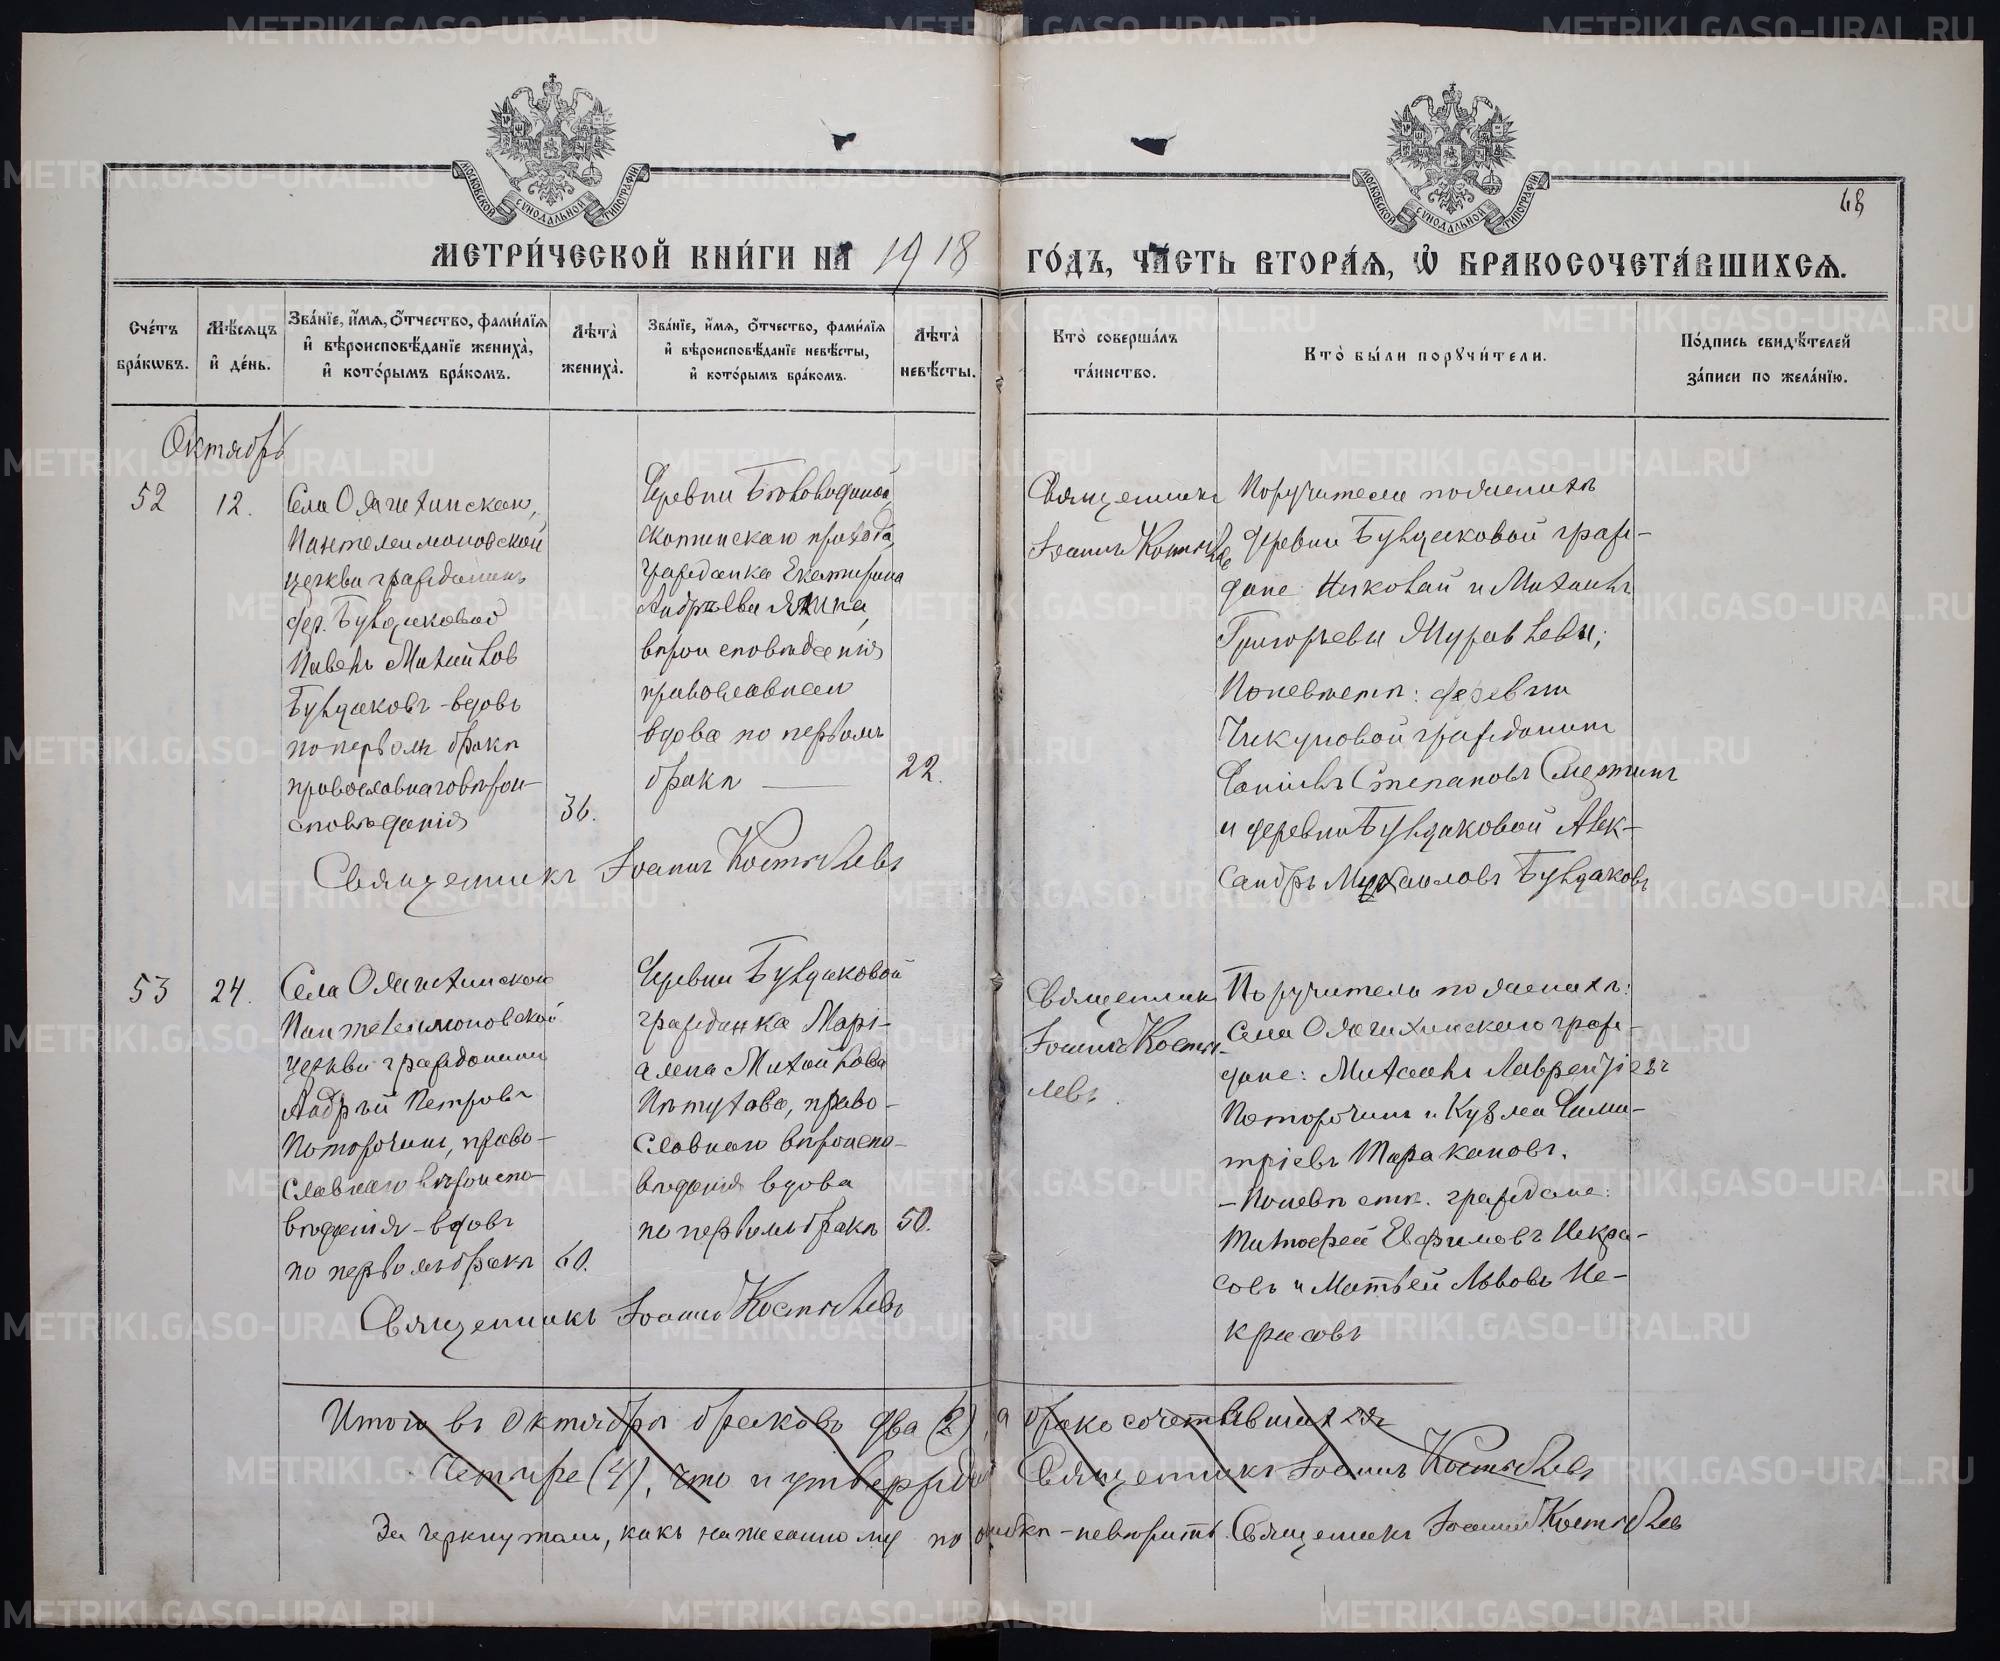 МОСКОВСКОЙ СУНОДАЛЬНОЙ ТИПОГРАФІИ
МОСКОВСКОЙ СУНОДАЛЬНОЙ ТИПОГРАФІИ
68
МЕТРИ́ЧЕСКОЙ КНИ́ГИ НА 1918
ГО́ДЪ, ЧА́СТЬ ВТОРА́Я, Ѡ҆ БРАКОСОЧЕТА́ВШИХСЯ.
Сче́тъ бра́кѡвъ.
Мѣ́сѧцъ и҆ де́нь.
Зва́нїе, и҆́мѧ, ѻ҆́тчество, фами́лїѧ и҆ вѣроисповѣ́данїе жениха̀, и҆ кото́рымъ бра́комъ.
Лѣта̀ жениха̀.
Зва́нїе, и҆́мѧ, ѻ҆́тчество, фами́лїѧ и҆ вѣроисповѣ́данїе невѣ́сты, и҆ кото́рымъ бра́комъ.
Лѣта̀ невѣ́сты.
Кто̀ соверша́лъ та́инство.
Кто̀ бы́ли порꙋчи́тели.
По́дпись свидѣ́телей за́писи по жела́нїю.
Октябрь
52
12.
Села
Пантелеимоновской
церкви гражданинъ
дер. Булдаковой
Павелъ Михайлов
Булдаковъ - вдовъ
по первомъ бракѣ
православнаго вѣрои-
сповѣданія
36.
Деревни
прихода,
гражданка Екатерина
Андрѣева
вѣроисповѣданія
православнаго
вдова по первомъ
бракѣ
22.
Священникъ Іоаннъ Костылевъ
Священникъ
Іоаннъ Костылевъ
Поручители по женихѣ
деревни Булдаковой граж-
дане: Николай и Михаилъ
Григорьевы Муравьевы;
По невѣстѣ: деревни
Чикуновой гражданинъ
Даніилъ Степановъ Сметанинъ
и деревни Булдаковой Алек-
сандръ Михаиловъ Булдаковъ
53
24.
Села
Пантелеимоновской
церкви гражданинъ
Андрѣй Петровъ
Поторочинъ, право-
славнаго вѣроиспо-
вѣданія - вдовъ
по первомъ бракѣ
60.
Деревни Булдаковой
гражданка Марі-
амна Михайлова
Пѣтухова, право-
славнаго вѣроиспо-
вѣданія вдова
по первомъ бракѣ
50.
Священникъ Іоаннъ Костылевъ
Священник
Іоаннъ Косты-
левъ
Поручители по женихѣ:
села граж-
дане: Михаилъ Лаврентіевъ
Поторочинъ и Кузьма Дими-
тріевъ Таракановъ.
- По невѣстѣ. граждане:
Тимофей Евфимовъ Некра-
совъ и Матвей Львовъ Не-
красовъ
Итого въ октябрѣ браковъ два (2), а бракосочетавшихся
четыре (4), что и утвержда Священникъ Іоаннъ Костылевъ
Зачеркнутому, какъ написанному по ошибкѣ - не вѣрить. Священникъ Іоаннъ Костылев